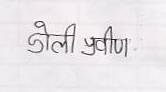 डोली प्रवीण